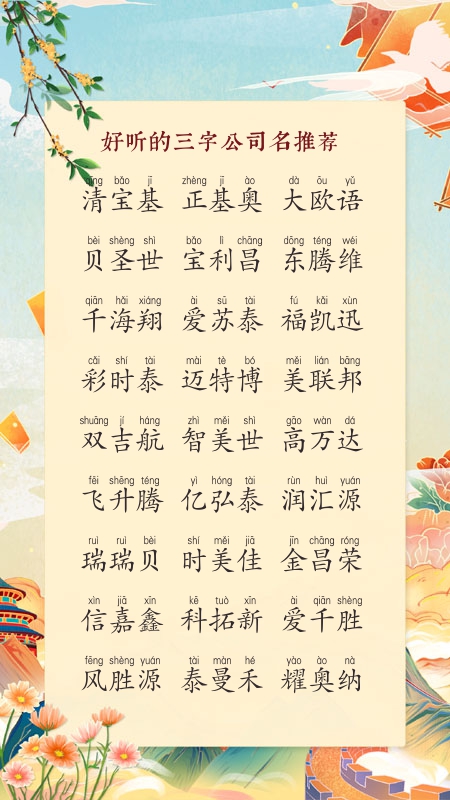 好听的三字公司名推荐
qīng bǎo jī zhèng jī ào dà ōu yǔ
清宝基 正基奥 大欧语
bèi shèng shì bǎo lì chāng dōng téng wéi
贝圣世 宝利昌 东腾维
qiān hǎi xiáng ài sū tài fú kǎi xùn
千海翔 爱苏泰 福凯迅
cǎi shí tài mài tè bó měi lián bāng
彩时泰 迈特博 美联邦
shuāng jí háng zhì měi shì gāo wàn dá
双吉航 智美世 高万达
fēi shēng téng yì hóng tài rùn huì yuán
飞升腾 亿弘泰 润汇源
ruì ruì bèi shí měi jiā jīn chāng róng
瑞瑞贝 时美佳 金昌荣
xìn jiā xīn kē tuò xīn ài qiān shèng
信嘉鑫 科拓新 爱千胜
fēng shèng yuán tài màn hé yào ào nà
风胜源 泰曼禾 耀奥纳